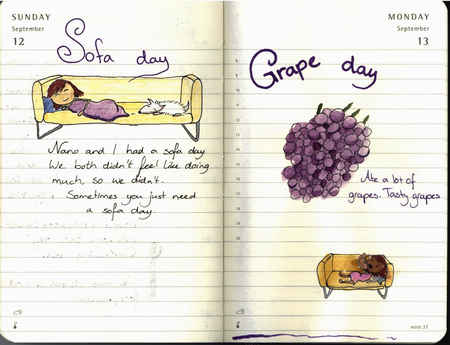 SUNDAY
September
12
Sofa day
Nano and I had a sofa day
We both didn't feel like doing
much, so we didn't.
Sometimes you just need
a sofa day.
MONDAY
September
13
Grape day
Ate a lot of
grapes. Tasty grapes
week 37